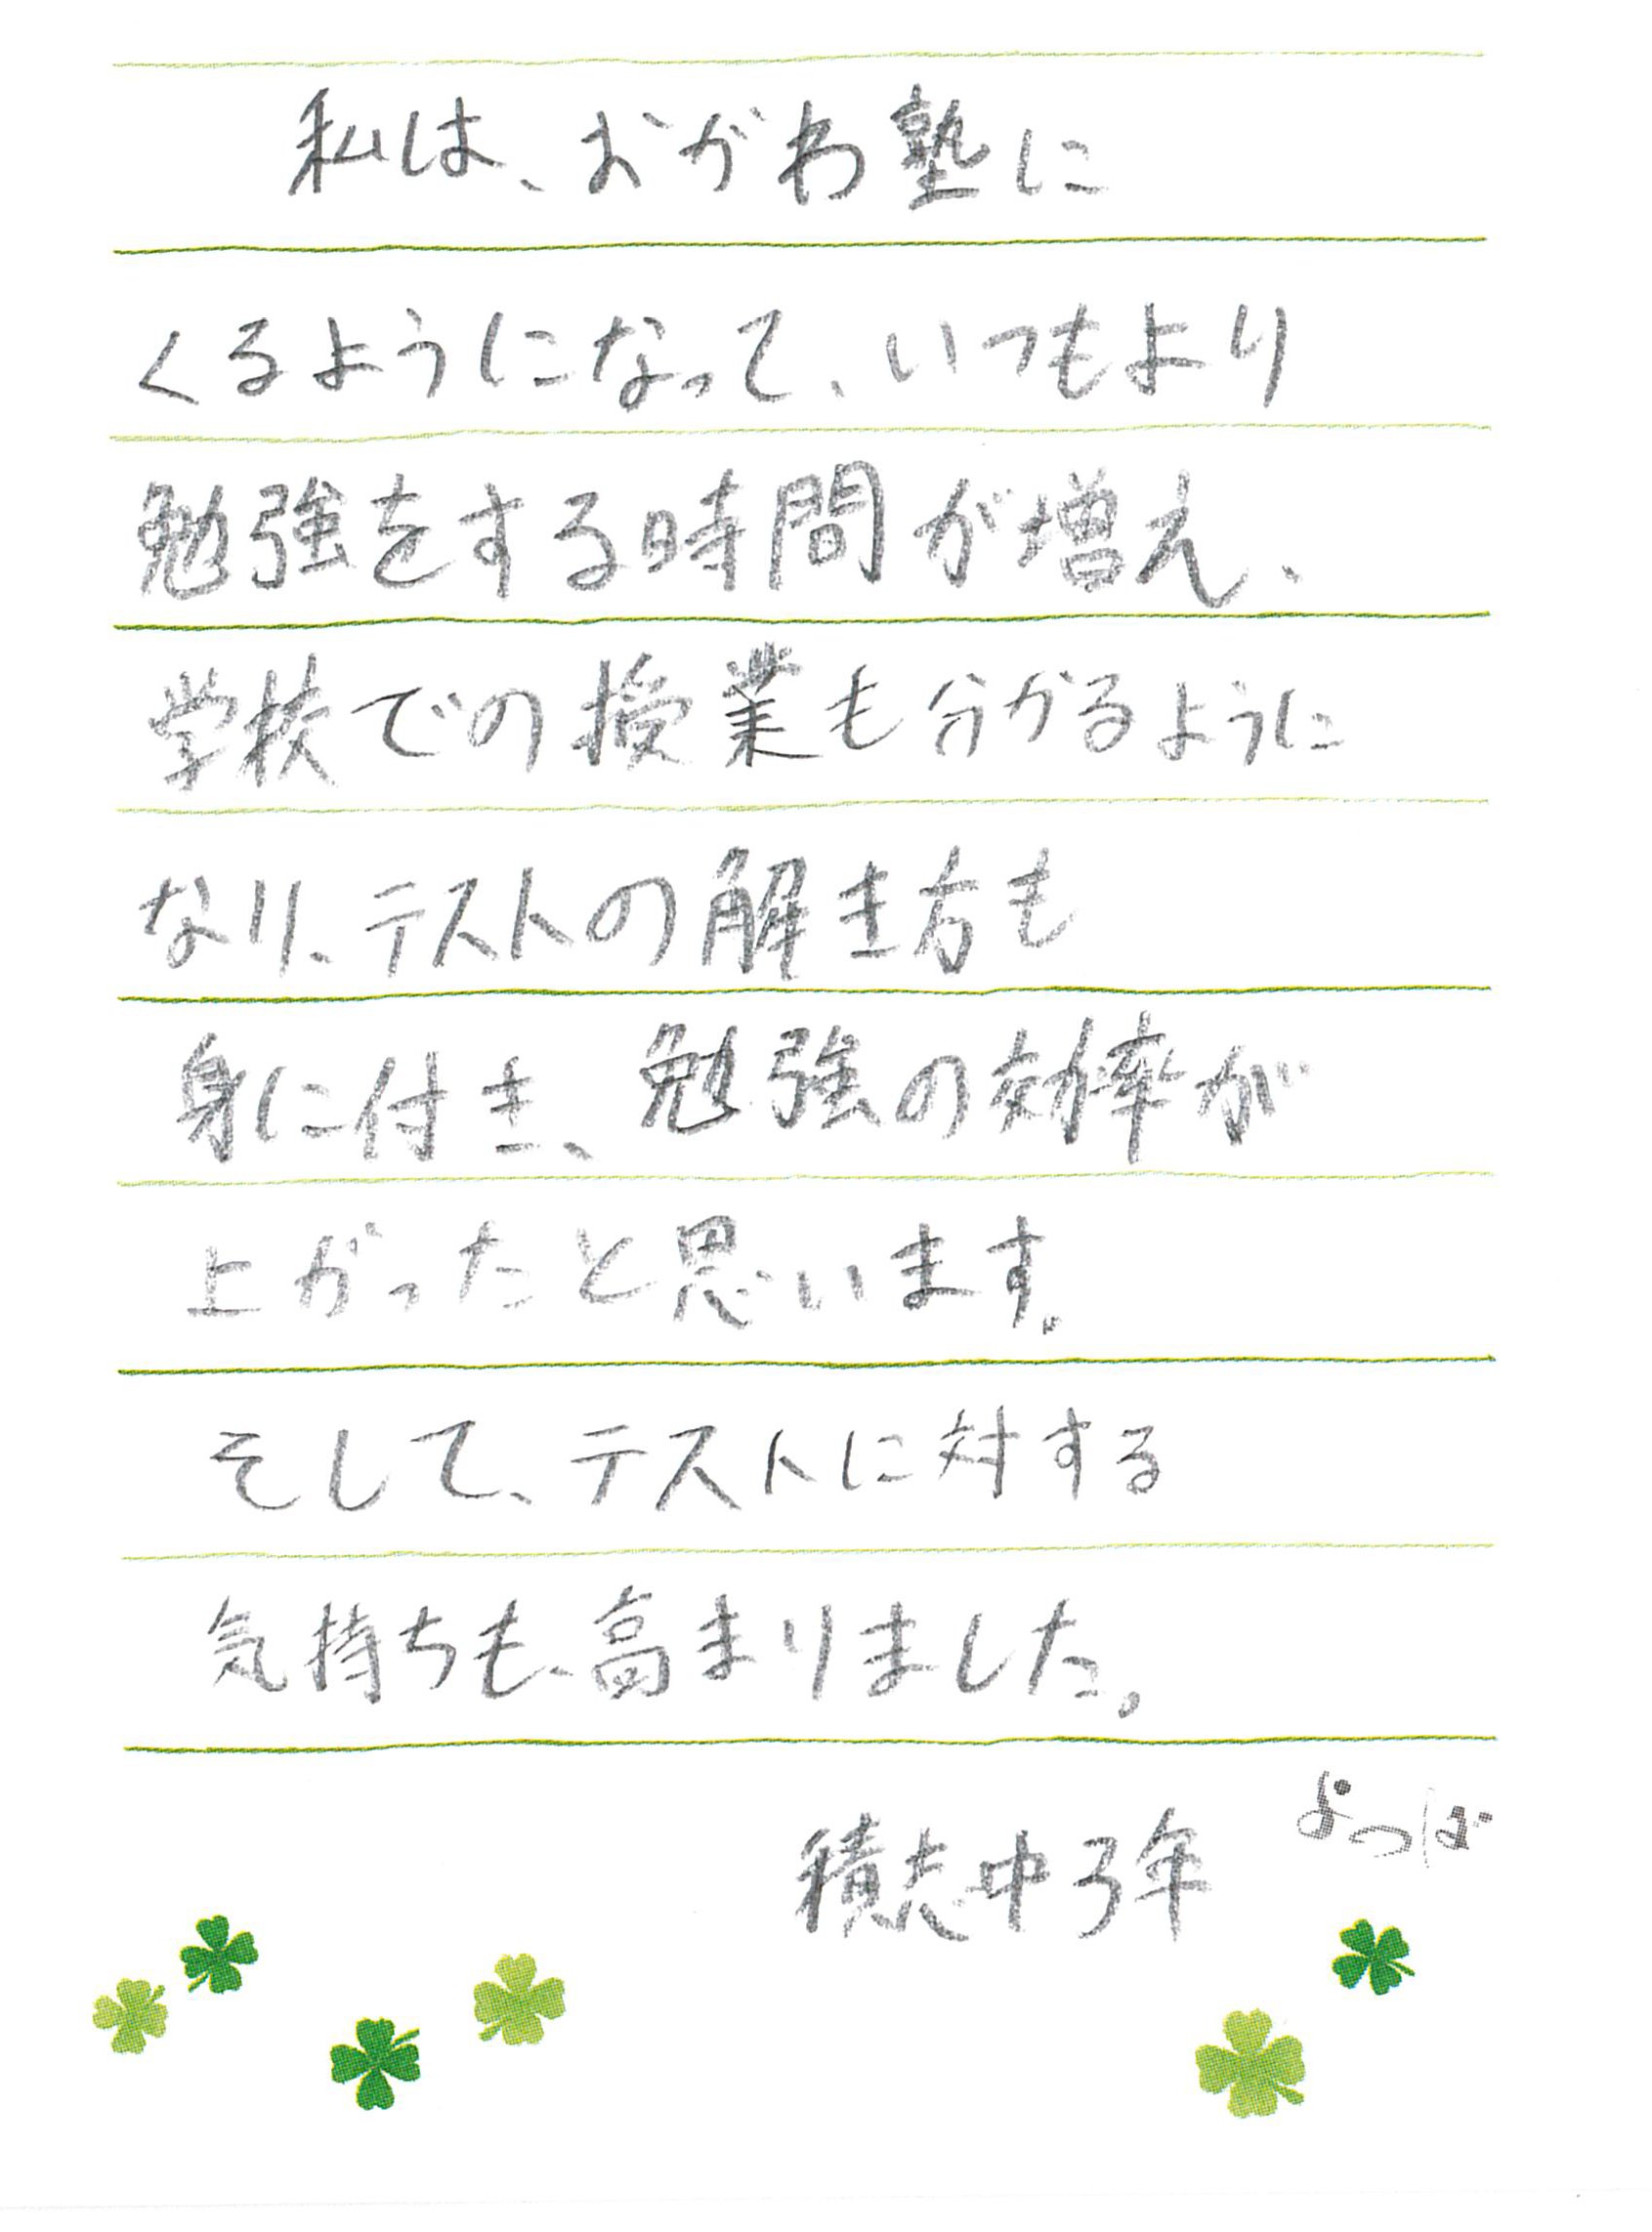 私は、おがわ塾に
くるようになって、いつもより
勉強をする時間が増え、
学校での授業も分かるように
なり、テストの解き方も
身に付き、勉強の効率が
上がったと思います。
そして、テストに対する
気持ちも、高まりました。
積志中3年
よつば